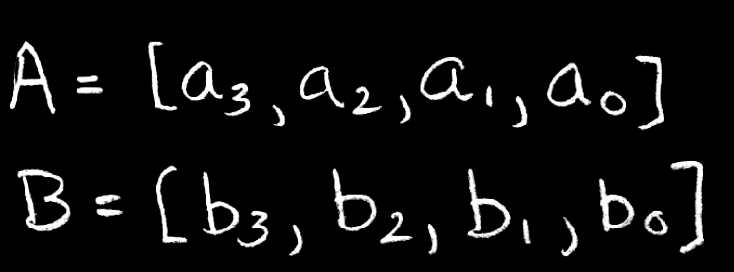 A = [a₃, a₂, a₁, a₀]
B = [b₃, b₂, b₁, b₀]